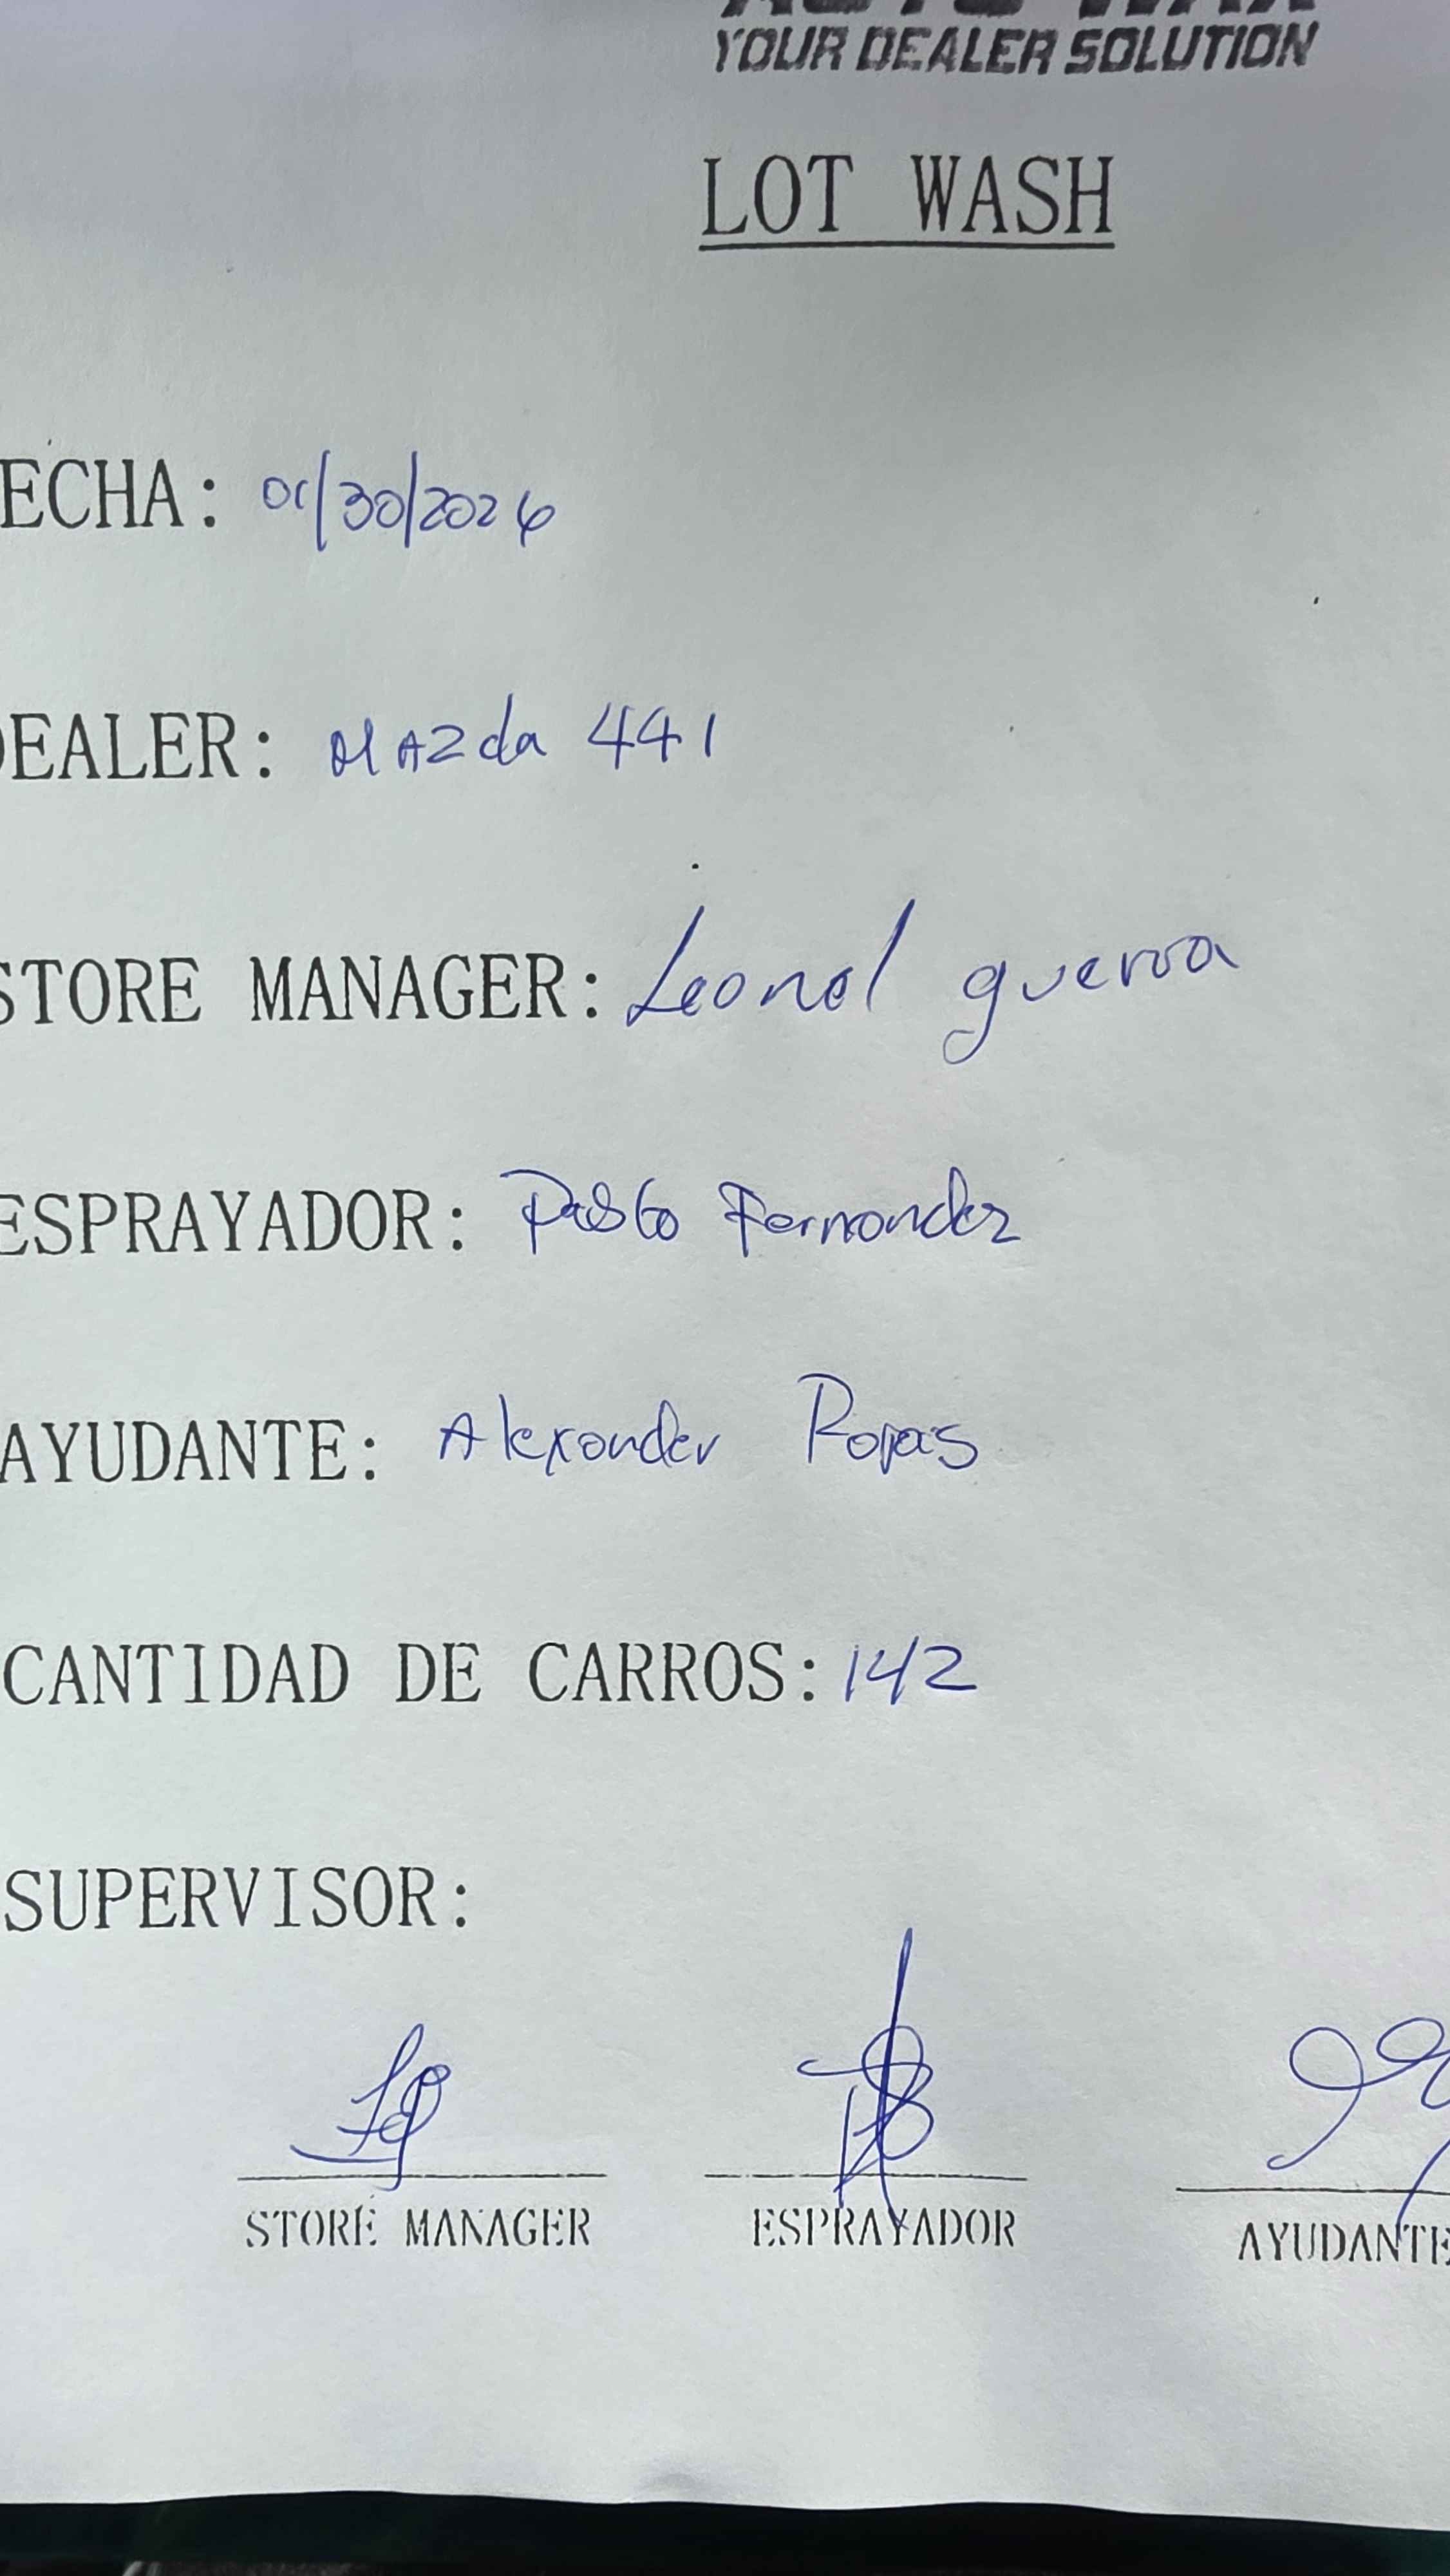 YOUR DEALER SOLUTION
LOT WASH
ECHA: 01/30/2026
DEALER: Mazda 441
STORE MANAGER: Leonel guerra
ESPRAYADOR: Pablo Fernandez
AYUDANTE: Alexander Rojas
CANTIDAD DE CARROS: 142
SUPERVISOR:
STORE MANAGER ESPRAYADOR AYUDANTE